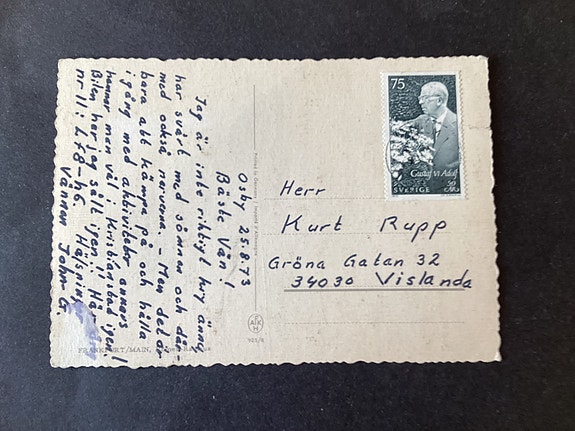 Osby 25.8.73
Bäste Vän!
Jag är inte riktigt kry ännu
har svårt med sömnen och där-
med också nerverna. - Men det är
bara att kämpa på och hålla
igång med aktiviteter annars
hamnar man väl i Kristianstad igen!
Bilen har jag sålt igen!! Hä
nr 11: Lf8-h6 Hälsning
Vännen John G.
75
Gustaf VI Adolf
SVERIGE
Herr
Kurt Rupp
Gröna Gatan 32
34030 Vislanda
FRANKFURT/MAIN,